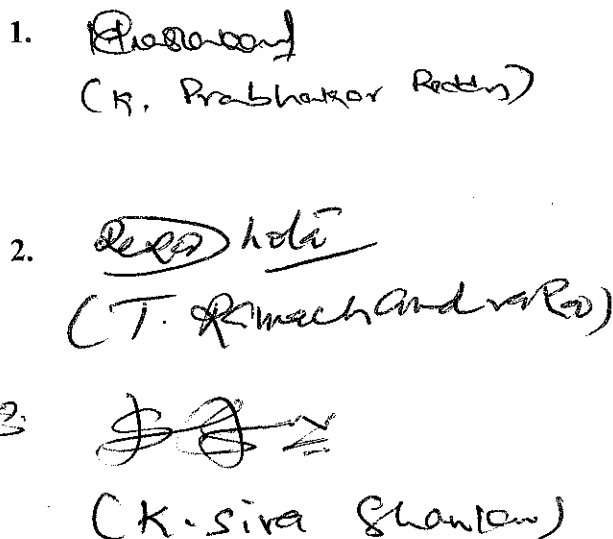 1.
(K. Prabhakar Reddy)
2.
(T. Ramachandra Rao)
3.
(K. Siva Shankar)